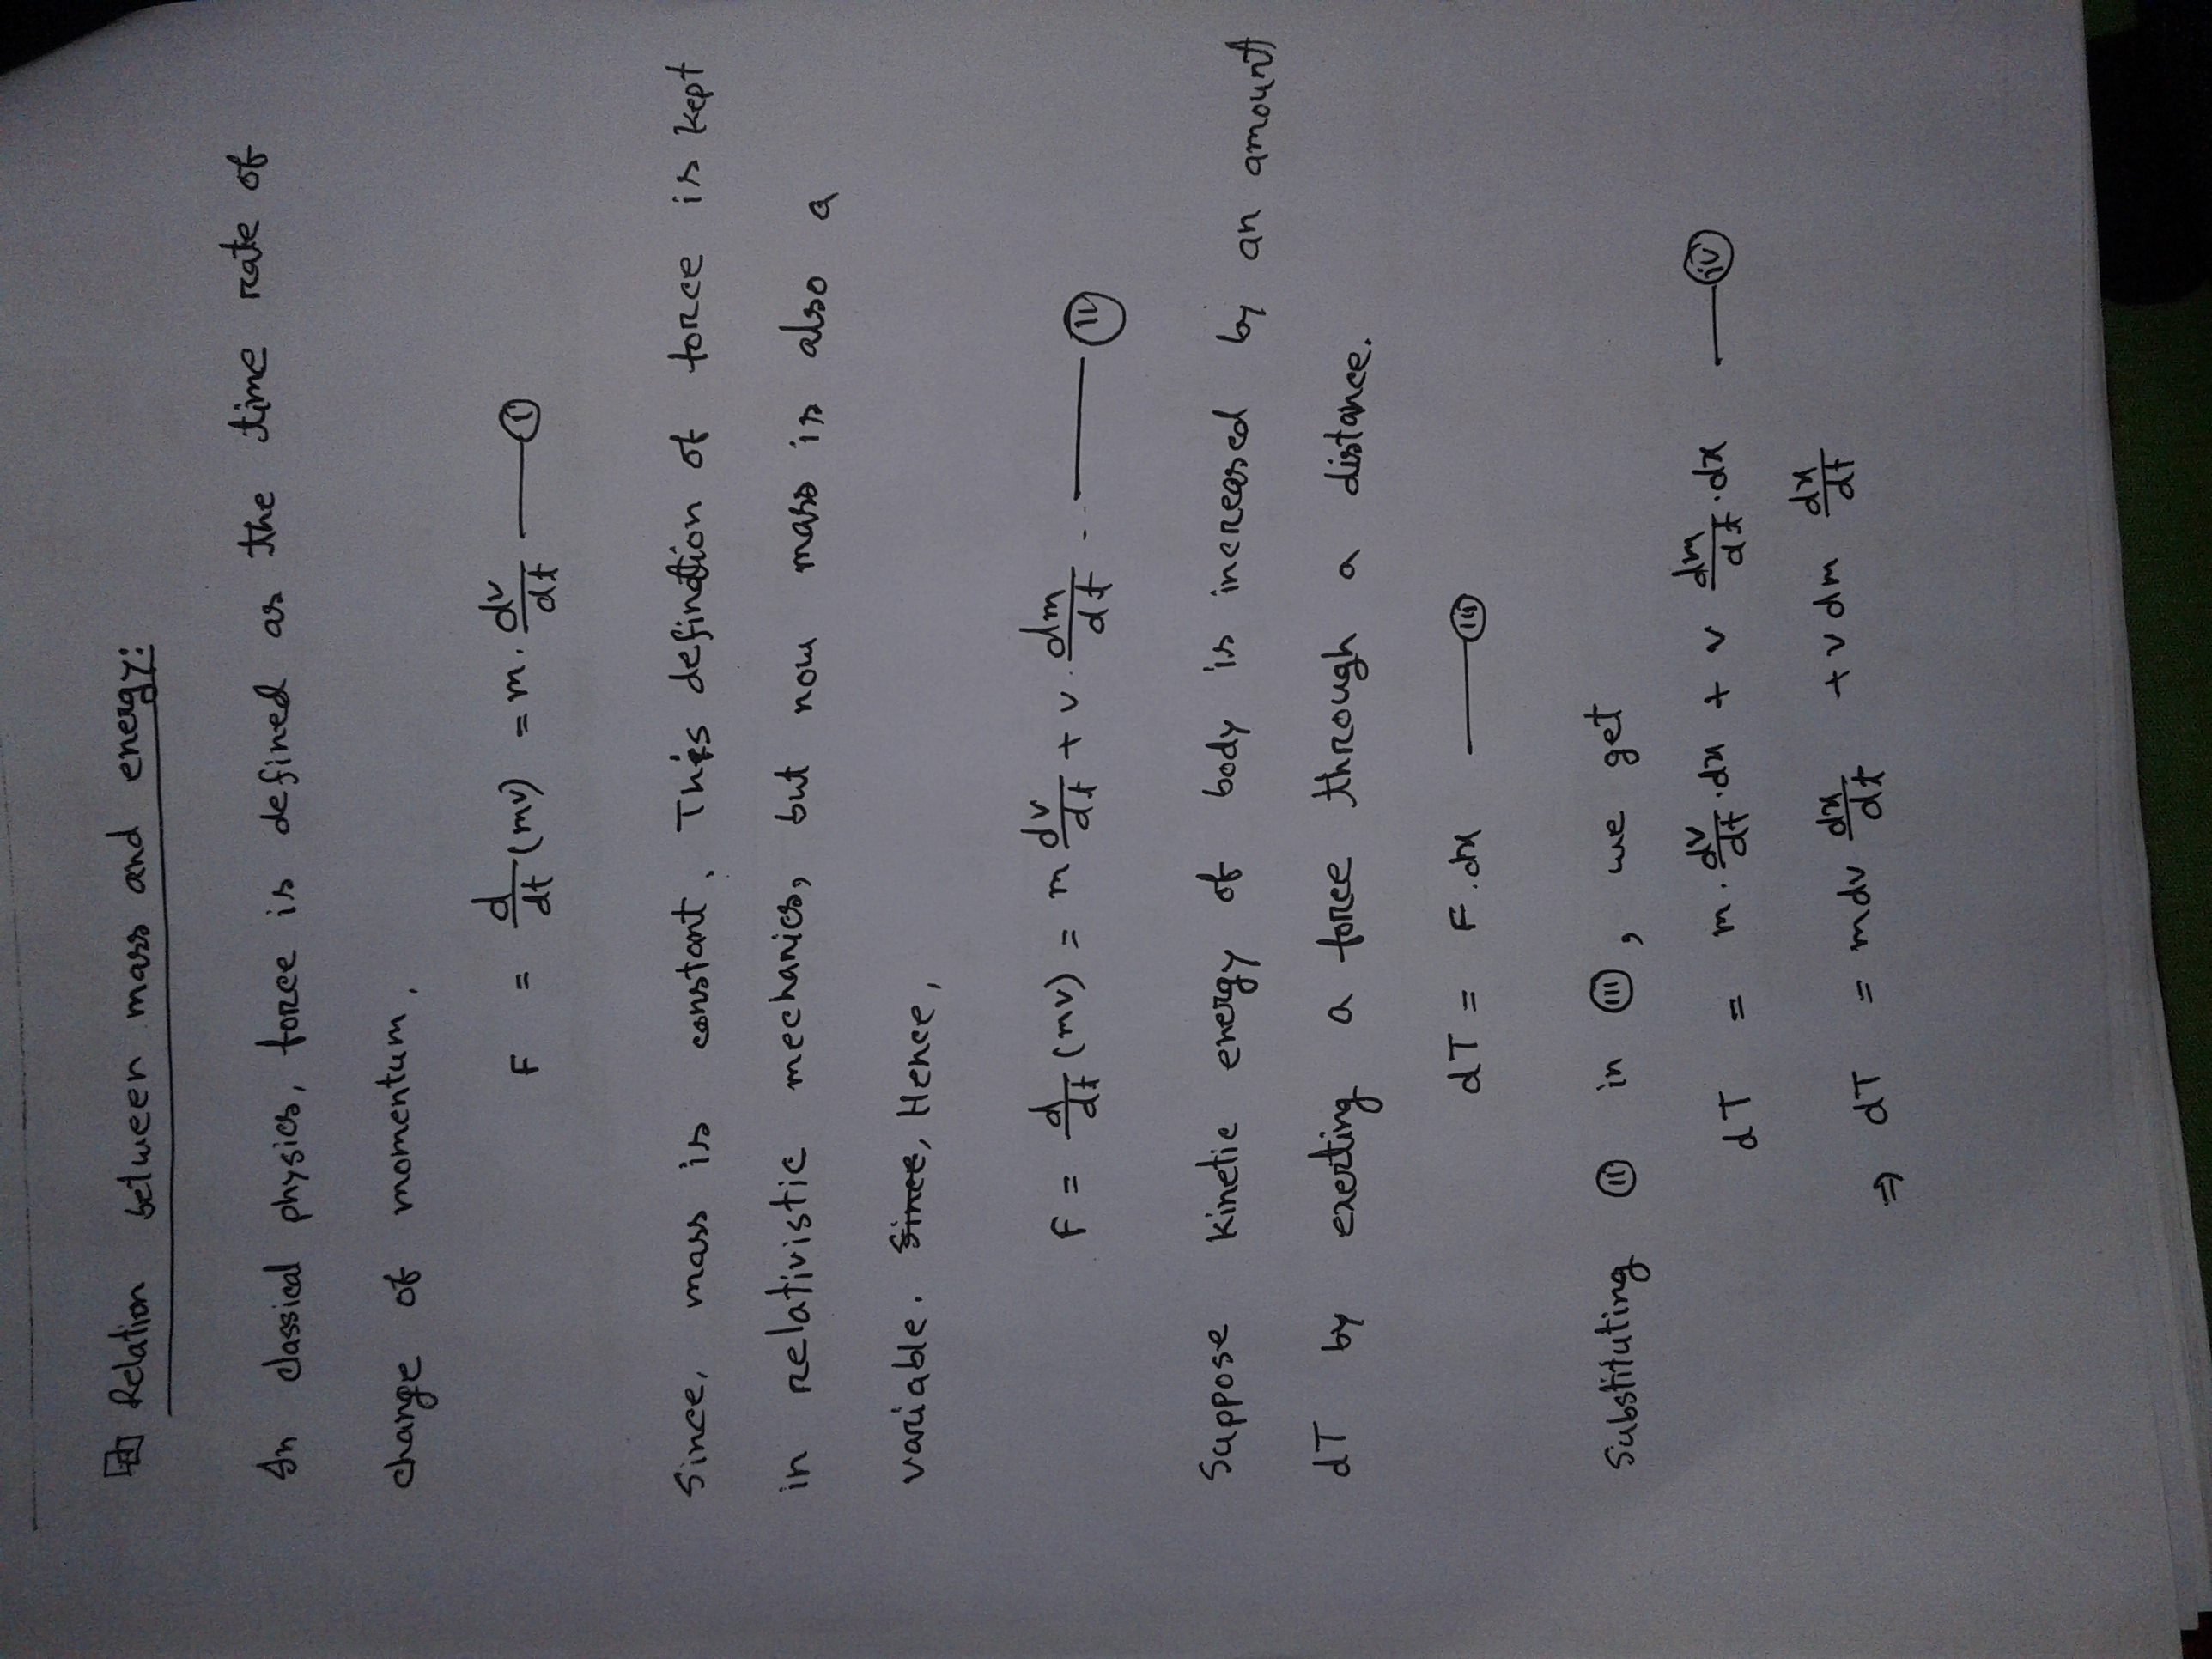 Relation between mass and energy:
In classical physics, force is defined as the time rate of
change of momentum,
F = d/dt (mv) = m. dv/dt —— (I)
Since, mass is constant. This definition of force is kept
in relativistic mechanics, but now mass is also a
variable. Since, Hence,
F = d/dt (mv) = m dv/dt + v. dm/dt —— (II)
Suppose kinetic energy of body is increased by an amount
dT by exerting a force through a distance.
dT = F.dx —— (III)
Substituting (II) in (III), we get
dT = m. dv/dt .dx + v dm/dt .dx —— (iv)
⇒ dT = mdv dx/dt + v dm dx/dt